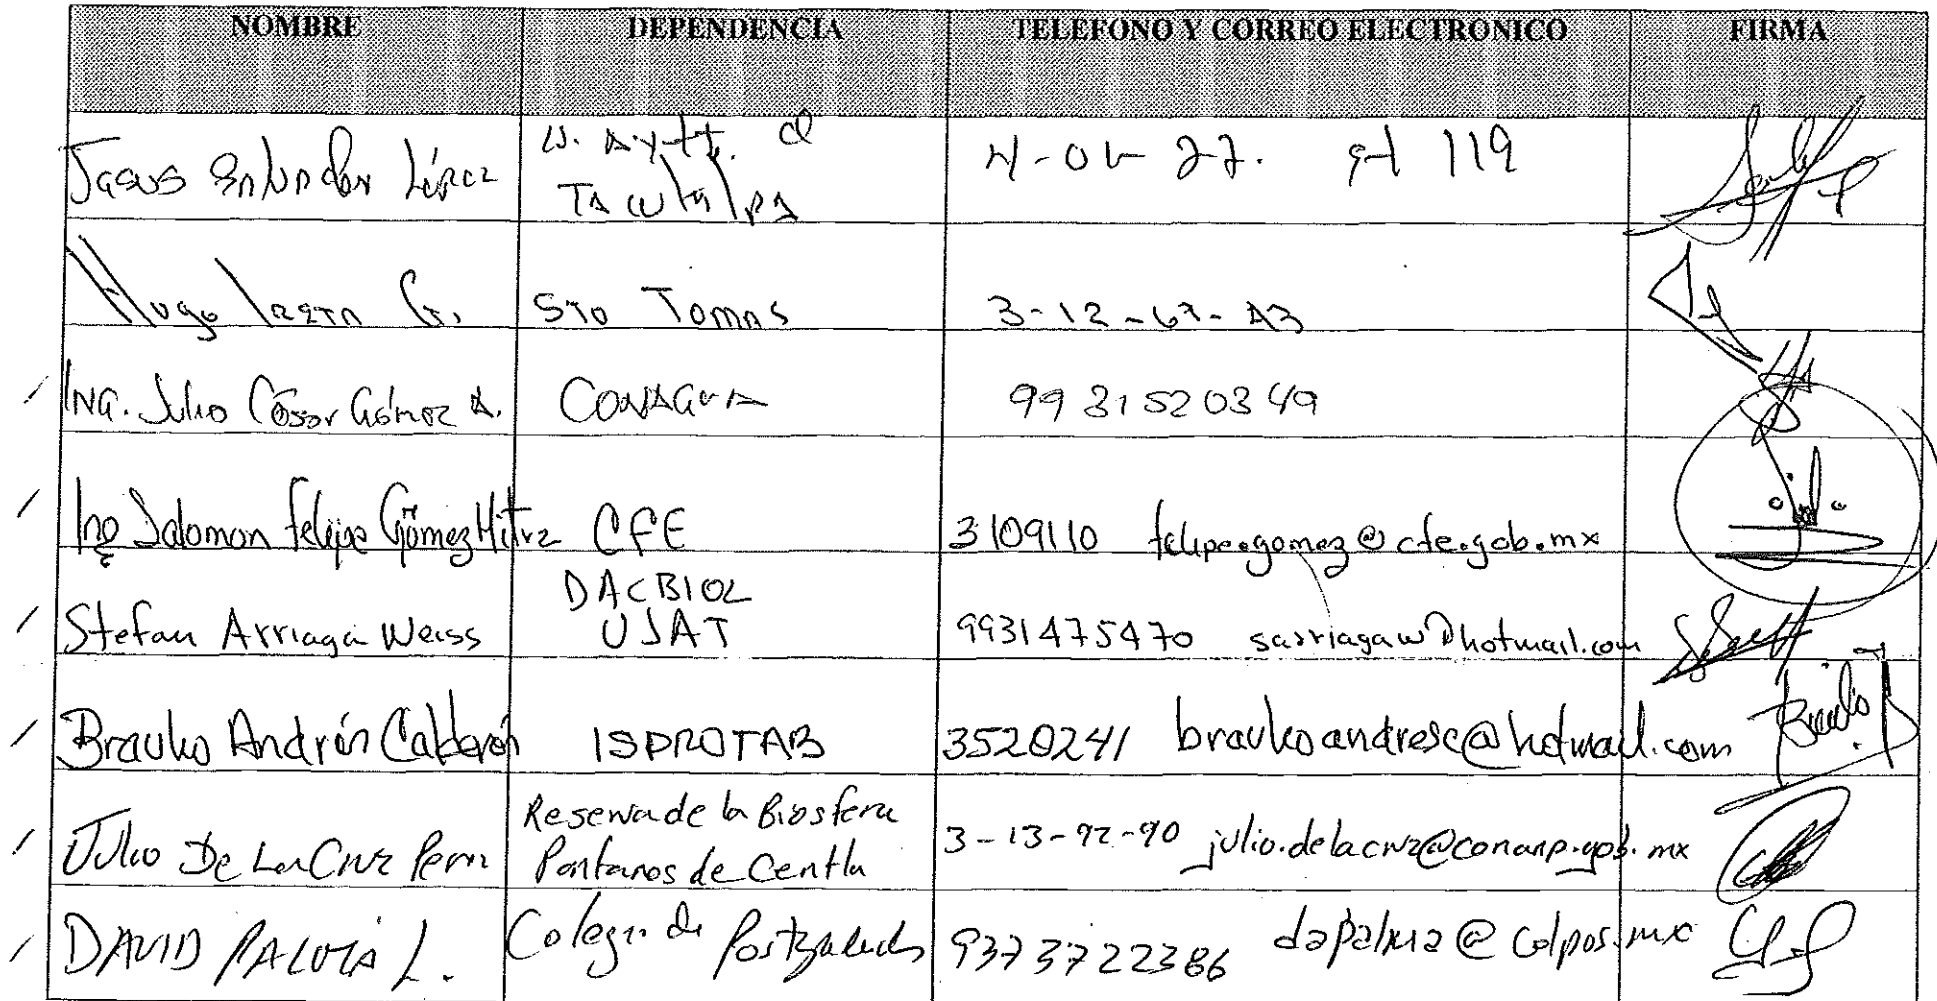 NOMBRE DEPENDENCIA TELEFONO Y CORREO ELECTRONICO FIRMA
Jesus Salvador López H. Aytt. d 119
Hugo G. Sto Tomas 3-12-67-43
ING. Julio César Gómez A. CONAGUA 9931520349
Ing Salomon Felipe Gómez CFE 3109110 felipe.gomez@cfe.gob.mx
DACBIOL
Stefan Arriaga Weiss UJAT 9931475470 sarriagaw@hotmail.com
Braulio Andrés Calderón ISPROTAB 3520241 braulioandresc@hotmail.com Braulio
Reserva de la Biosfera
Julio De La Cruz Pantanos de Centla 3-13-92-90 julio.delacruz@conanp.gob.mx
DAVID PALMA L. Colegio de Postgraduados 9373722386 dapalma@colpos.mx